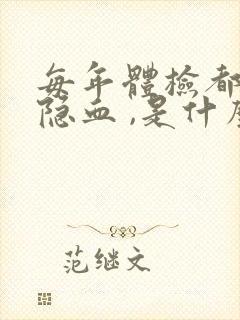 每年體檢都
隐血,是什
范继文